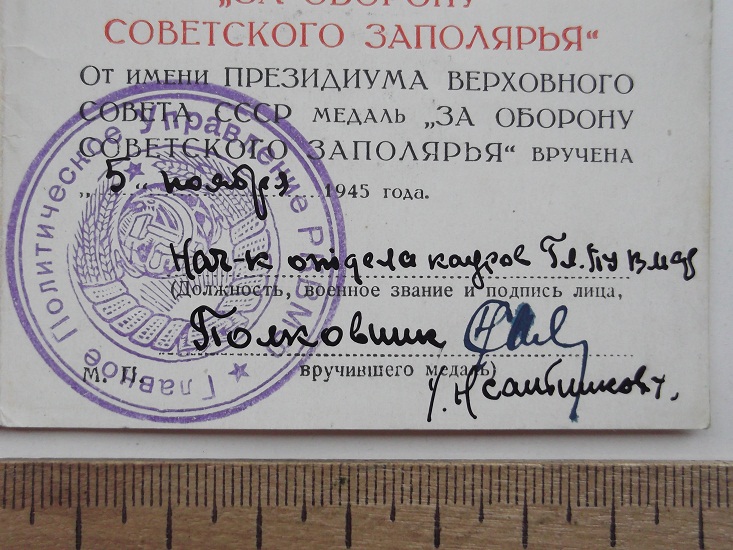 „ЗА ОБОРОНУ
СОВЕТСКОГО ЗАПОЛЯРЬЯ“
От имени ПРЕЗИДИУМА ВЕРХОВНОГО
СОВЕТА СССР МЕДАЛЬ „ЗА ОБОРОНУ
СОВЕТСКОГО ЗАПОЛЯРЬЯ“ ВРУЧЕНА
„5“ ноября 1945 года.
Нач-к отдела кадров Гл.ПУ ВМФ
(Должность, военное звание и подпись лица,
Полковник
М. П. вручившего медаль)
Главное Политическое Управление РКВМФ